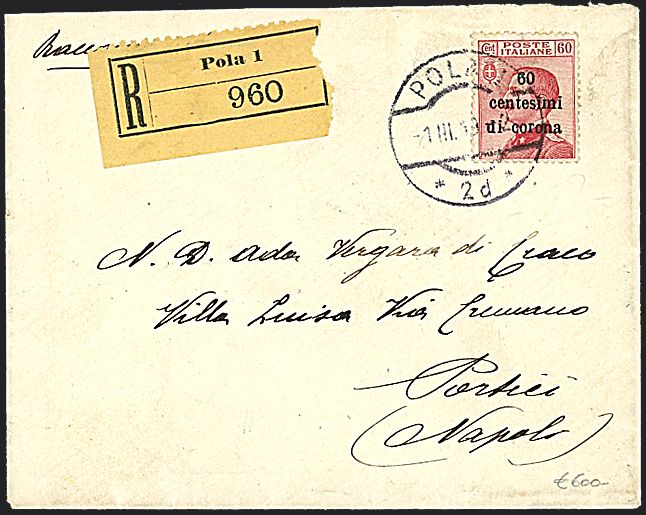 Pola 1
R
960
POLA
1 III. 19
* 2d *
Cent POSTE ITALIANE 60
60
centesimi
di corona
N. D. Ada Vergara di Craco
Villa Luisa Via Cremano
Portici
(Napoli)
€600-